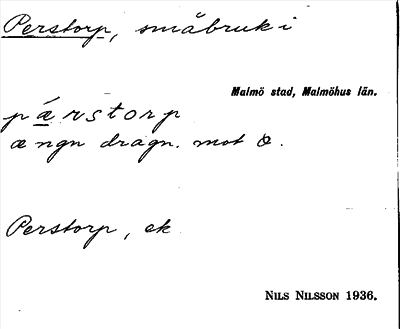 Perstorp, småbruk i
Malmö stad, Malmöhus län.
pǽrstorp
æ ngn dragn. mot ö.
Perstorp, ek
NILS NILSSON 1936.